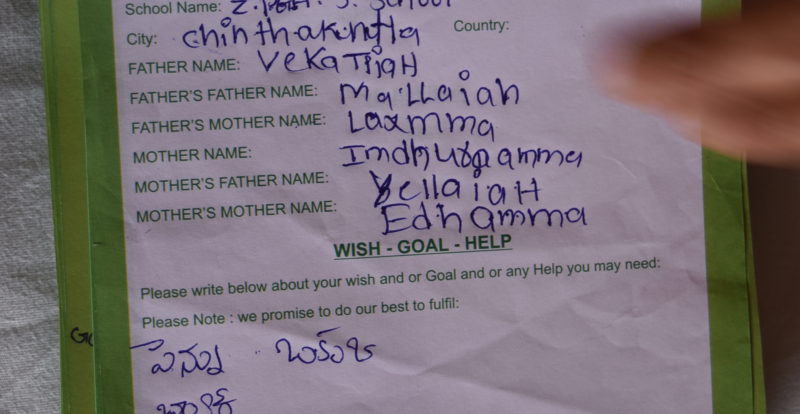 School Name: Z.P.H. S. School
City: Chinthakuntla Country:
FATHER NAME: VeKaTiaH
FATHER'S FATHER NAME: Ma'LLaiah
FATHER'S MOTHER NAME: Laxmma
MOTHER NAME:
MOTHER'S FATHER NAME: YellaiaH
MOTHER'S MOTHER NAME: Edhamma
WISH - GOAL - HELP
Please write below about your wish and or Goal and or any Help you may need:
Please Note : we promise to do our best to fulfil:
పెన్ను